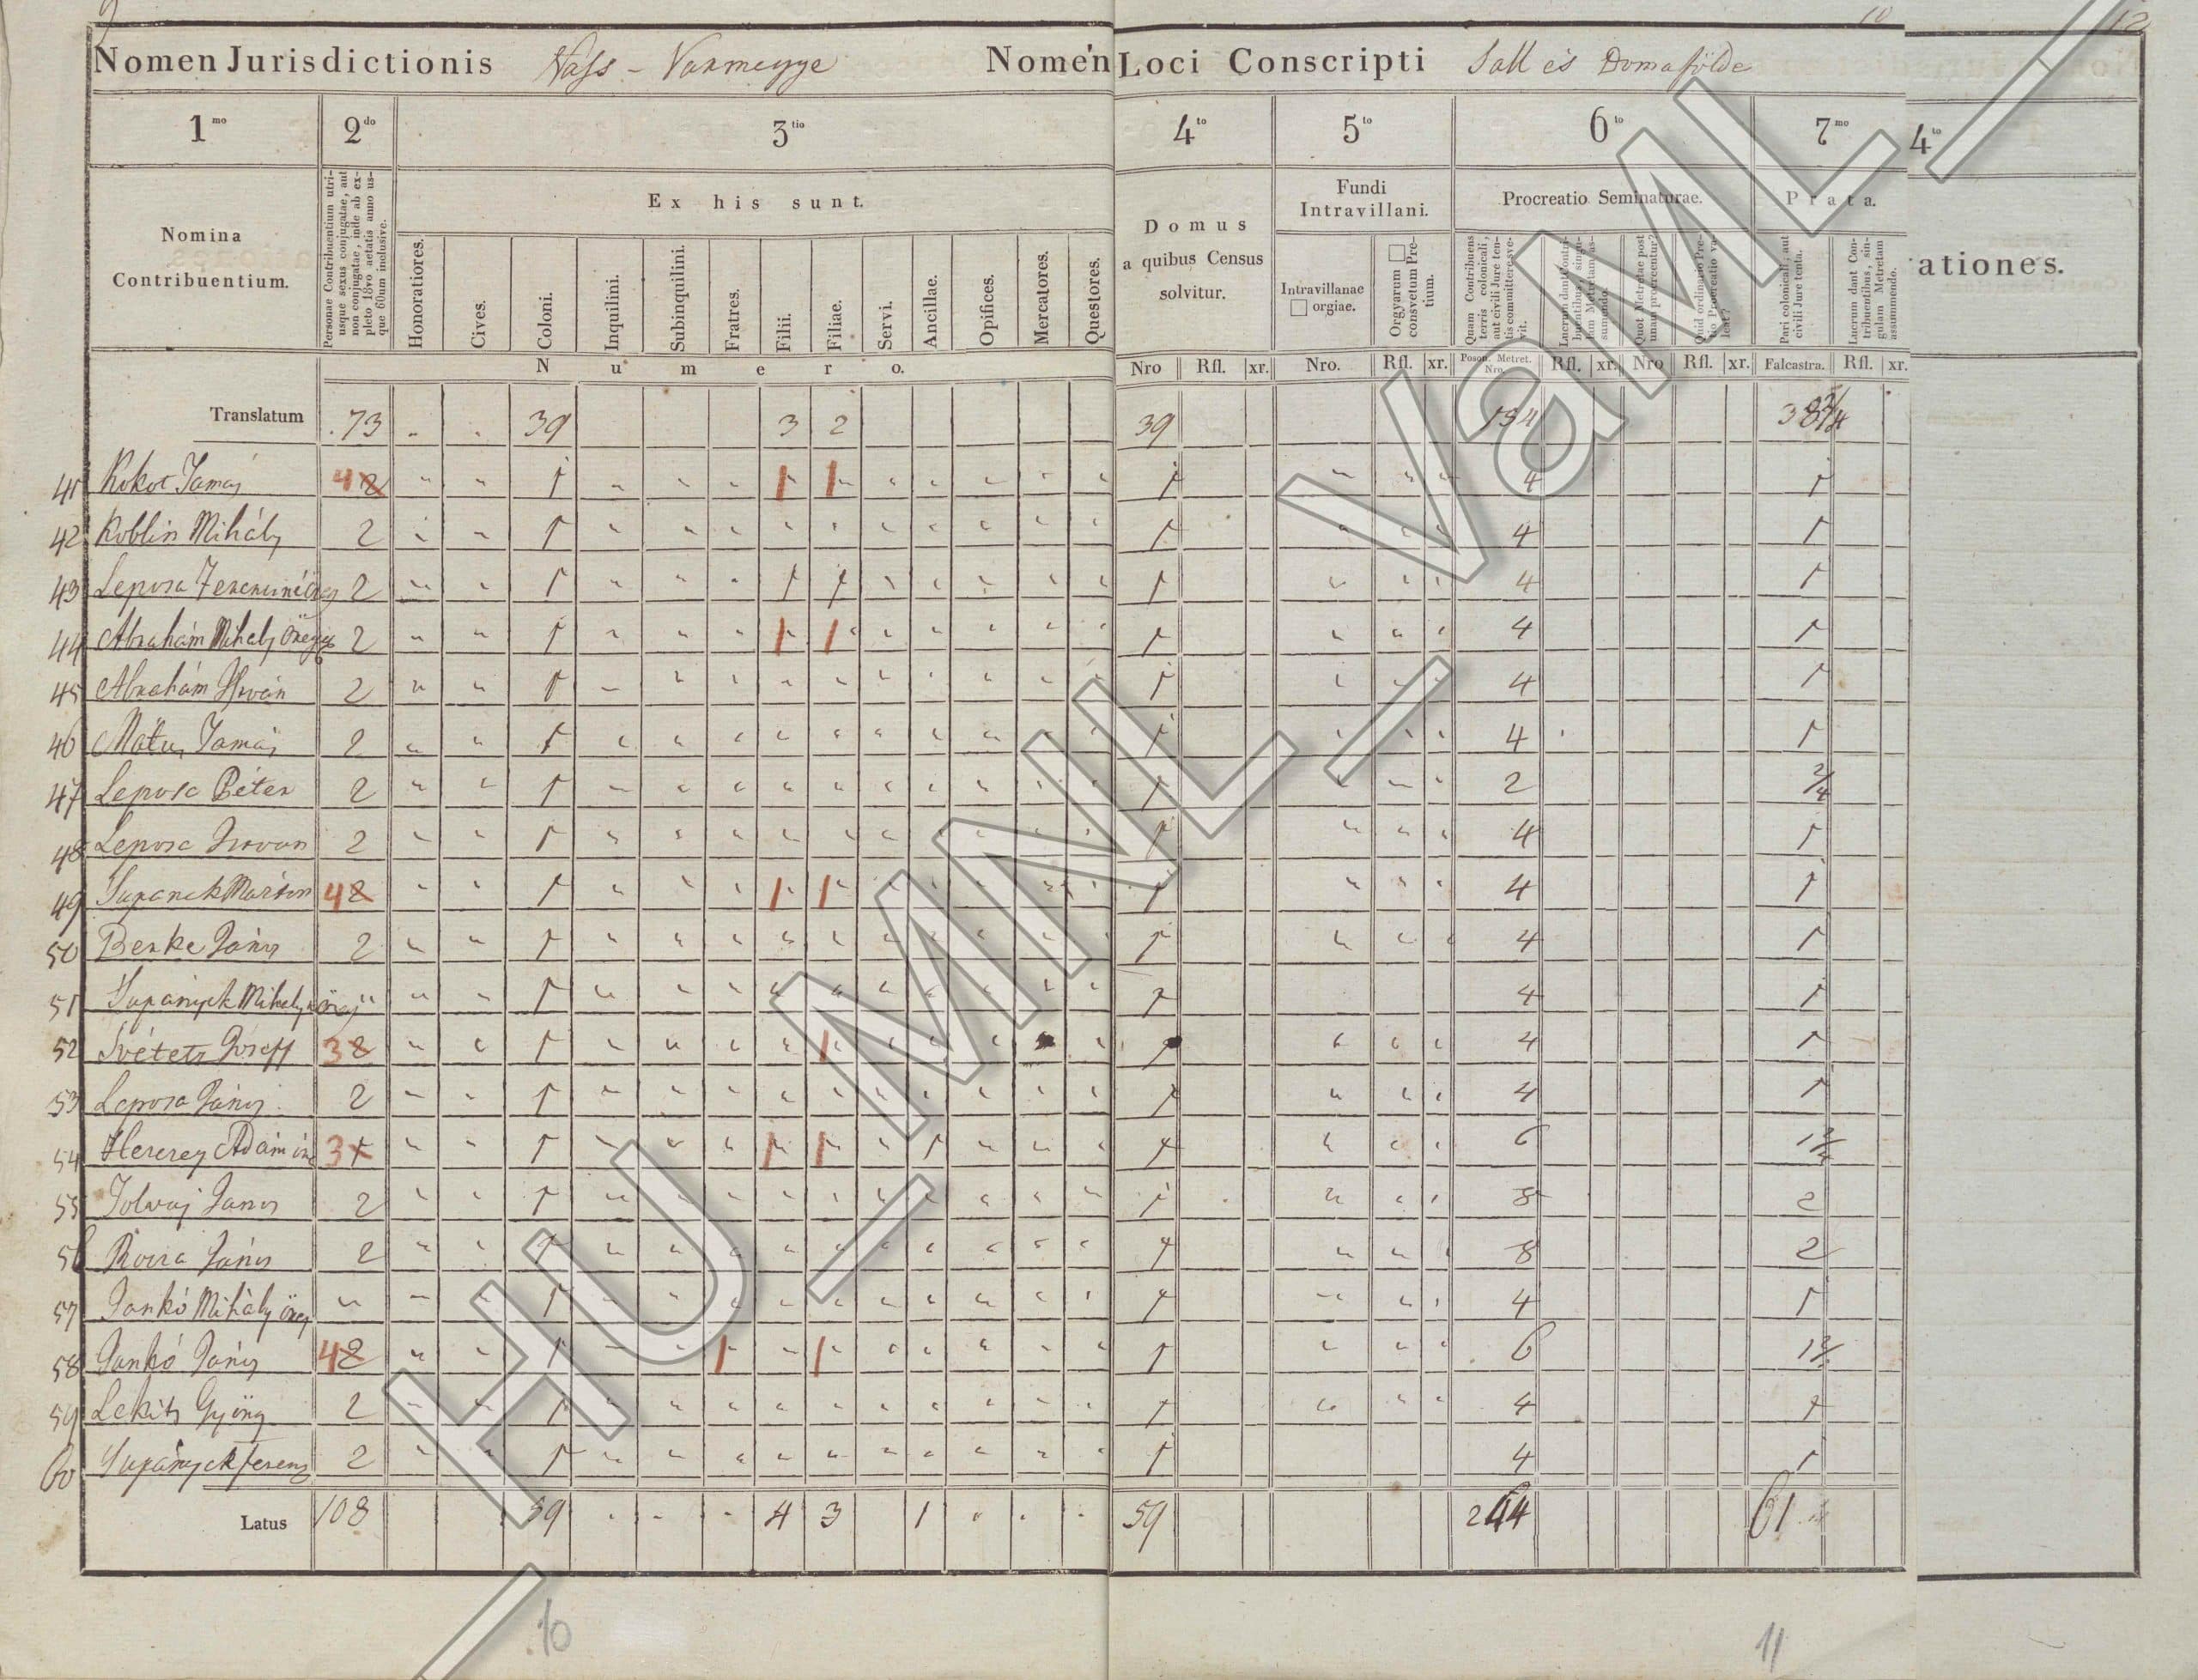 9 10 12
Nomen Jurisdictionis Vass - Varmegye Nomen Loci Conscripti Sall és Domafölde
1mo 2do 3tio 4to 5to 6to 7mo 4to
Nomina Contribuentium.
Personae Contribuentium utriusque sexus conjugatae, aut non conjugatae, inde ab expleto 18vo aetatis anno usque 60um inclusive.
Ex his sunt.
Honoratiores. Cives. Coloni. Inquilini. Subinquilini. Fratres. Filii. Filiae. Servi. Ancillae. Opifices. Mercatores. Questores.
Domus a quibus Census solvitur.
Fundi Intravillani.
Intravillanae □ orgiae.
Orgyarum □ consvetum Pretium.
Procreatio Seminaturae.
Quam Contribuens terris colonicali, aut civili Jure tentis committere svevit.
Quot Metretae post unam procreentur?
Prata.
Pari colonicali, aut civili Jure tenta.
Lucrum dant Contribuentibus, singulam Metretam assummendo.
ationes.
Numero. Nro Rfl. xr. Nro. Rfl. xr. Poson. Metret. Nro. Rfl. xr. Nro Rfl. xr. Falcastra. Rfl. xr.
Translatum 73 39 3 2 39 154 38 3/4
41 Kokot Tamás 4 2 1 1 1 1 4 1
42 Koblin Mihály 2 1 1 4 1
43 Leposa 2 1 1 1 1 4 1
44 Abrahám Mihály 2 1 1 1 1 4 1
45 Abrahám István 2 1 1 4 1
46 Mátus Tamás 2 1 1 4 1
47 Leposa Péter 2 1 1 2 2/4
48 Leposa Istvan 2 1 1 4 1
49 Supanek Márton 4 2 1 1 1 1 4 1
50 Berke János 2 1 1 4 1
51 Supányek Mihály öregg 1 1 4 1
52 Svétets Joseff 3 2 1 1 1 4 1
53 Leposa János 2 1 1 4 1
54 Herczeg Adám 3 1 1 1 1 1 1 6 1 2/4
55 Tolvaj Janos 2 1 1 8 2
56 János 2 1 1 8 2
57 Jankó Mihály öreg 1 1 4 1
58 Jankó János 4 2 1 1 1 1 6 1 2/
59 Lekits György 2 1 1 4 1
60 Supányek ferenz 2 1 1 4 1
Latus 108 59 4 3 1 59 244 61
10 11
HU_MNL_VaML_